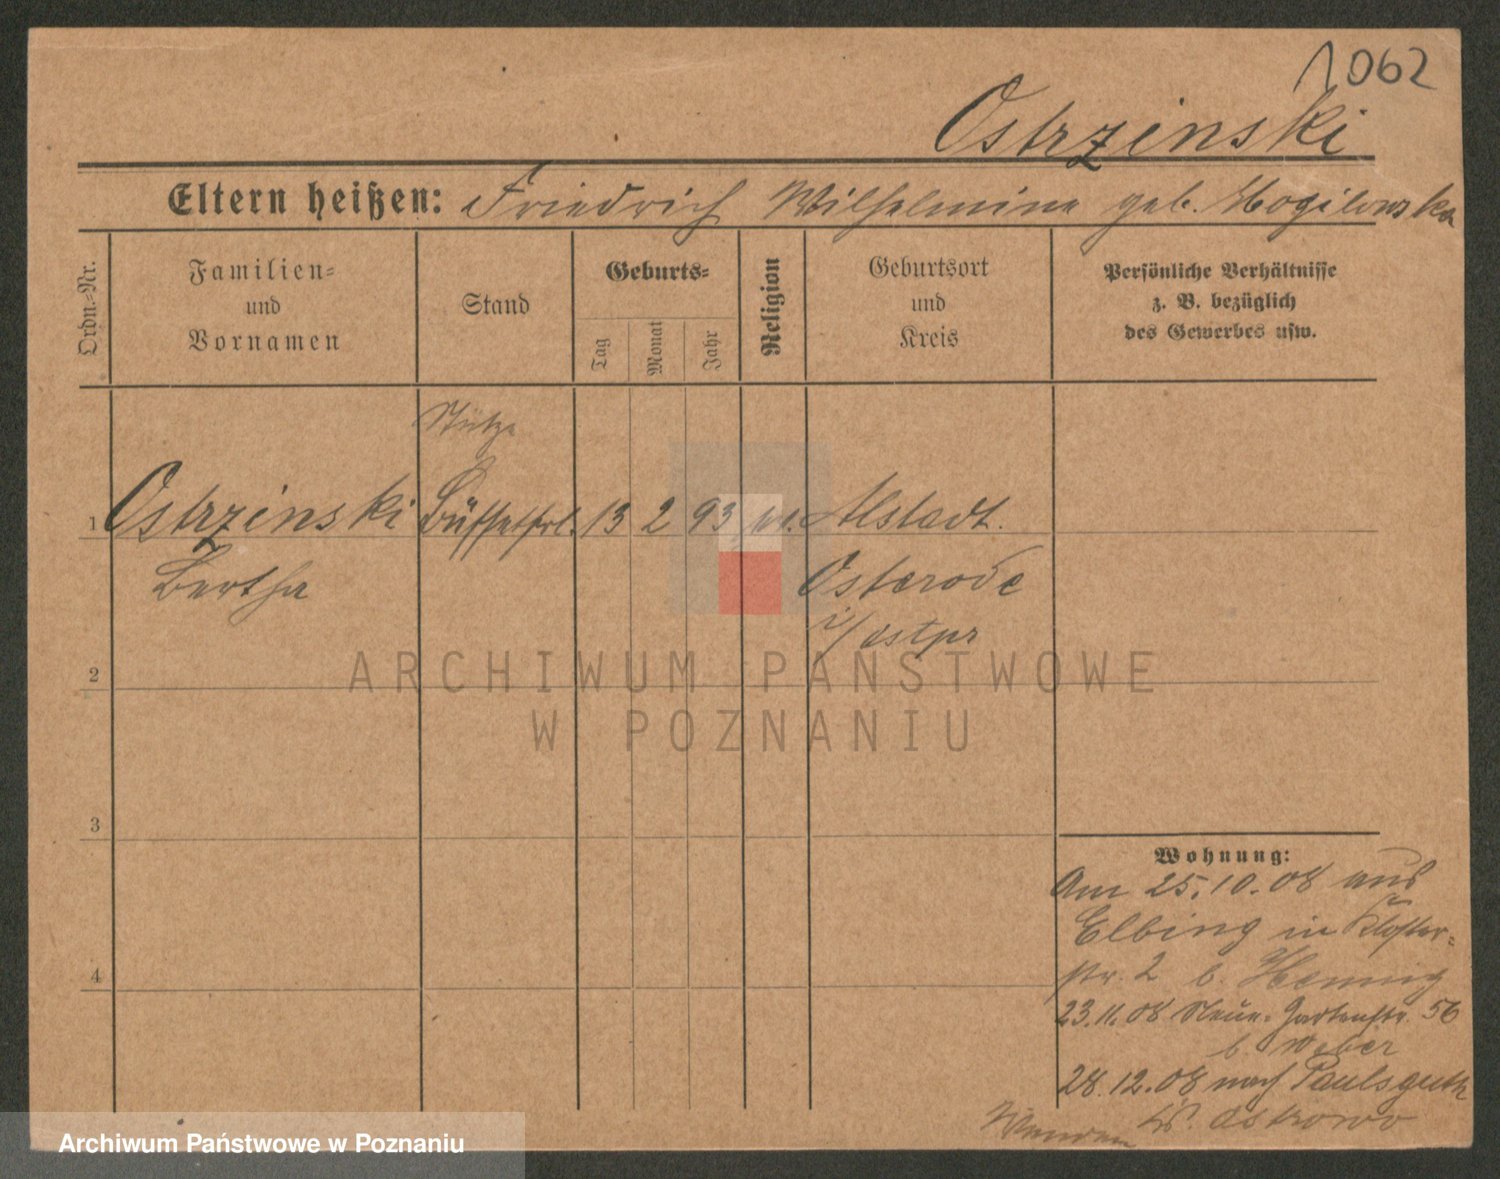 1062
Ostrzinski
Eltern heißen: Friedrich Wilhelmine geb. Mogilowska
Ordn.-Nr.
Familien-
und
Vornamen
Stand
Geburts-
Tag
Monat
Jahr
Religion
Geburtsort
und
Kreis
Persönliche Verhältnisse
z. B. bezüglich
des Gewerbes usw.
Stütze
1 Ostrzinski Büffetfrl. 13 2 93 Alstadt.
Bertha Osterode
i/ Ostpr
2
3
4
Wohnung:
Am 25.10.08 aus
Elbing in Kloster-
str. 2 b. Hennig
23.11.08 Neue Gartenstr. 56
b. Weber
28.12.08 nach Paulsguth
Kr. Ostrowo
Wenden
ARCHIWUM PAŃSTWOWE
W POZNANIU
Archiwum Państwowe w Poznaniu